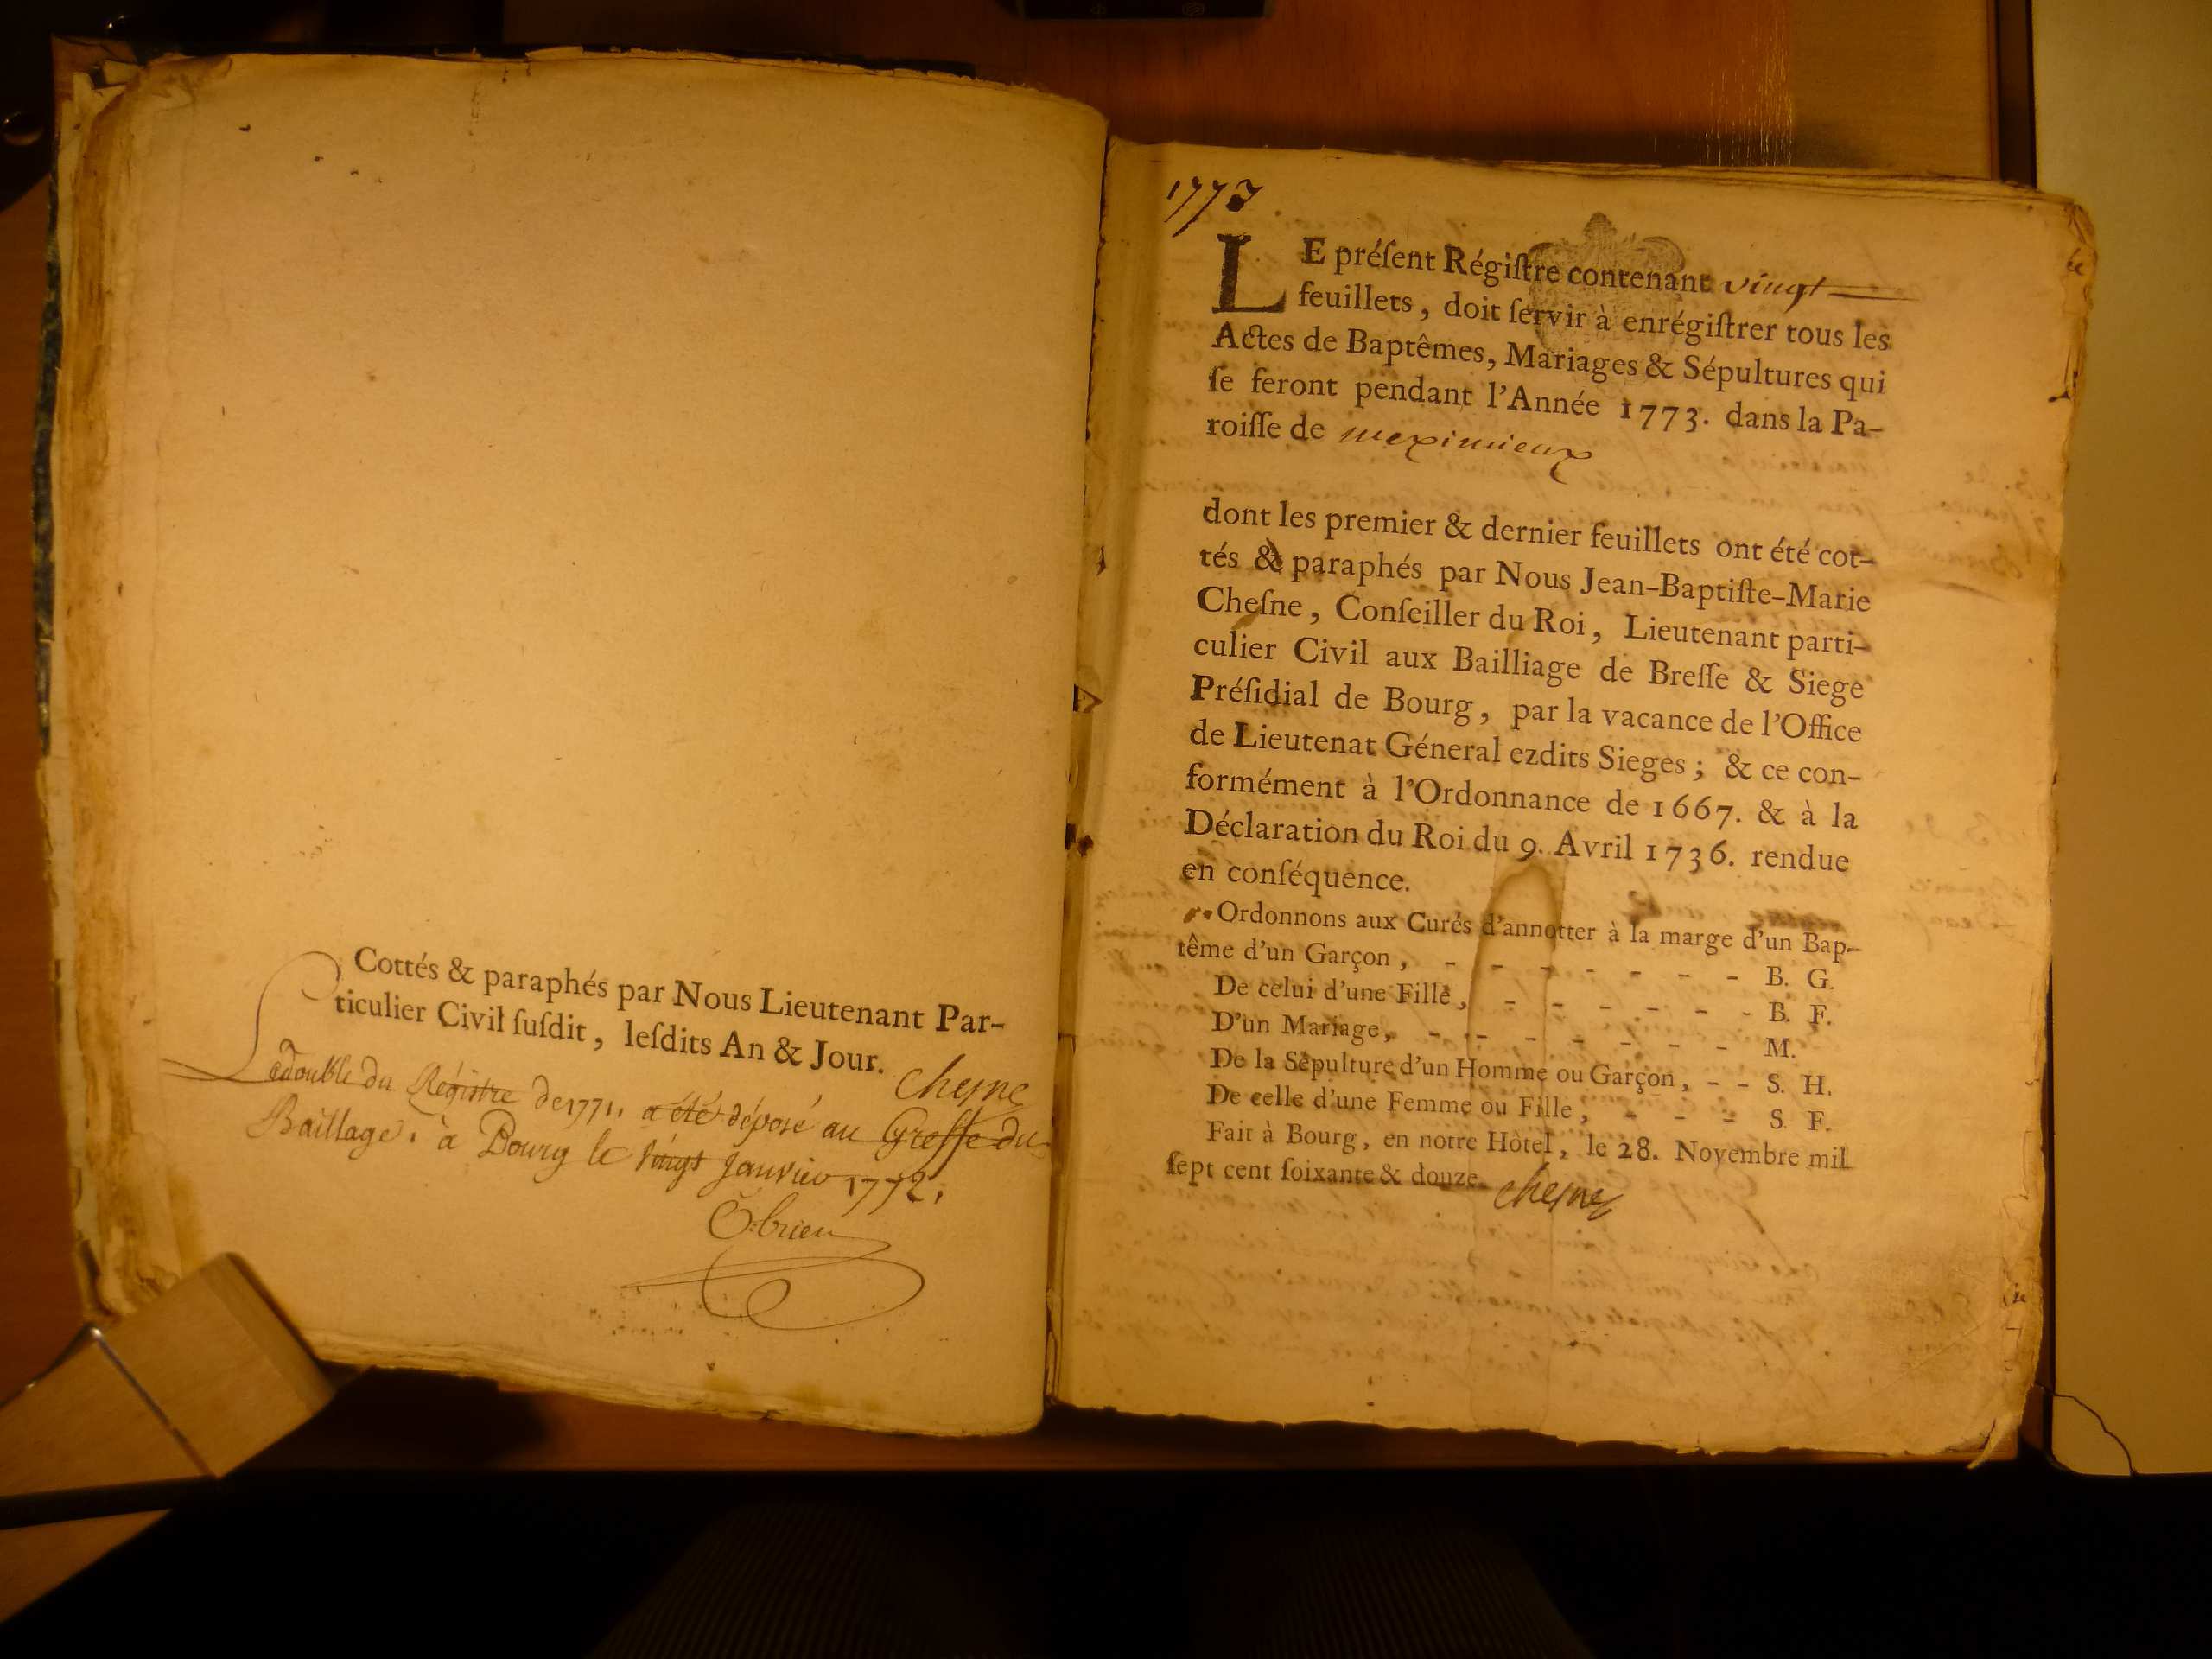 Cottés & paraphés par Nous Lieutenant Par-
ticulier Civil ſuſdit, leſdits An & Jour.
Chesne
Le double du Régistre de 1771. a été déposé au Greffe du
Baillage. à Bourg le vingt Janvier 1772.
O-brien
1773
LE préſent Régiſtre contenant vingt
feuillets, doit ſervir à enrégiſtrer tous les
Actes de Baptêmes, Mariages & Sépultures qui
ſe feront pendant l'Année 1773. dans la Pa-
roiſſe de meximieux
dont les premier & dernier feuillets ont été cot-
tés & paraphés par Nous Jean-Baptiſte-Marie
Cheſne, Conſeiller du Roi, Lieutenant parti-
culier Civil aux Bailliage de Breſſe & Siege
Préſidial de Bourg, par la vacance de l'Office
de Lieutenat Géneral ezdits Sieges; & ce con-
formément à l'Ordonnance de 1667. & à la
Déclaration du Roi du 9. Avril 1736. rendue
en conſéquence.
Ordonnons aux Curés d'annotter à la marge d'un Bap-
tême d'un Garçon, - - - - - - - B. G.
De celui d'une Fille, - - - - - - B. F.
D'un Mariage, - - - - - - - M.
De la Sépulture d'un Homme ou Garçon, - - S. H.
De celle d'une Femme ou Fille, - - - S. F.
Fait à Bourg, en notre Hôtel, le 28. Novembre mil
ſept cent ſoixante & douze. Chesne